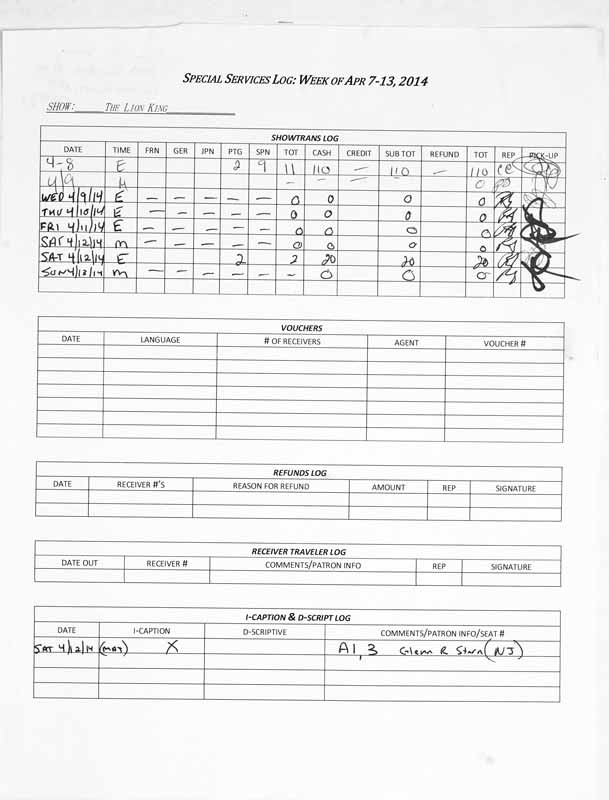 SPECIAL SERVICES LOG: WEEK OF APR 7-13, 2014
SHOW: THE LION KING
SHOWTRANS LOG
DATE TIME FRN GER JPN PTG SPN TOT CASH CREDIT SUB TOT REFUND TOT REP PICK-UP
4-8 E 2 9 11 110 — 110 — 110 CC
4/9 — — — 0
WED 4/9/14 E — — — — — 0 0 0 0
THU 4/10/14 E — — — — — 0 0 0 0
FRI 4/11/14 E — — — — — 0 0 0 0
SAT 4/12/14 M — — — — — 0 0 0 0
SAT 4/12/14 E 2 2 20 20 20
SUN 4/13/14 M — — — — — — 0 0 0
VOUCHERS
DATE LANGUAGE # OF RECEIVERS AGENT VOUCHER #
REFUNDS LOG
DATE RECEIVER #'S REASON FOR REFUND AMOUNT REP SIGNATURE
RECEIVER TRAVELER LOG
DATE OUT RECEIVER # COMMENTS/PATRON INFO REP SIGNATURE
I-CAPTION & D-SCRIPT LOG
DATE I-CAPTION D-SCRIPTIVE COMMENTS/PATRON INFO/SEAT #
SAT 4/12/14 (MAT) X A1, 3 Glenn R Stern (NJ)